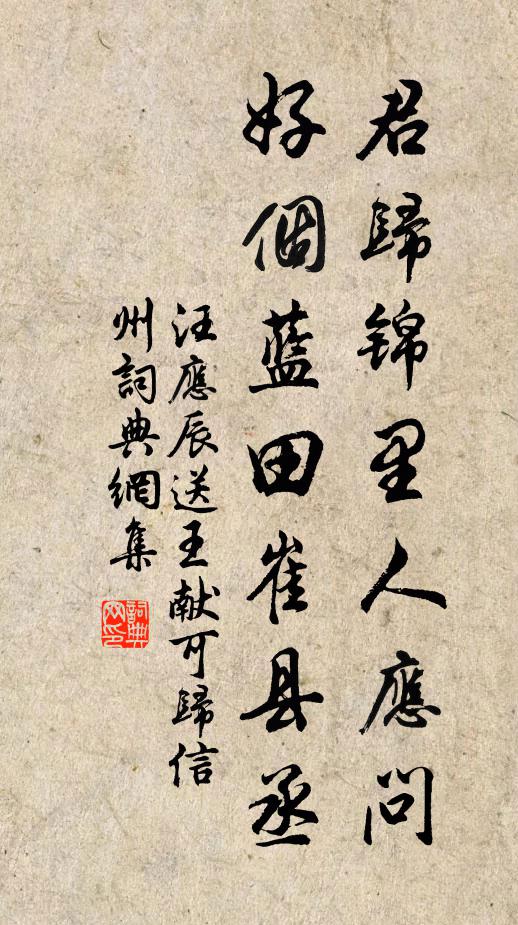 君歸锦里人應问
好個藍田崔县丞
汪應辰送王献可歸信
州詞典網集
詞典网印